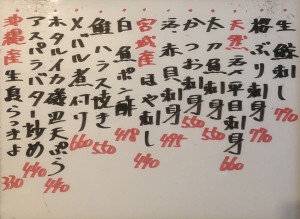 生鮭刺し 770
桜ぶり刺身 770
天然 平目刺身 660
太刀魚刺身 550
かつお刺身 550
赤貝刺身 495
宮城産 ほや刺し 440
白魚ポン酢 418
鮭ハラス焼き 550
メバル煮付け 660
ホタルイカ磯辺天ぷら 440
アスパラバター炒め 440
沖縄産 生島らっきょ 330